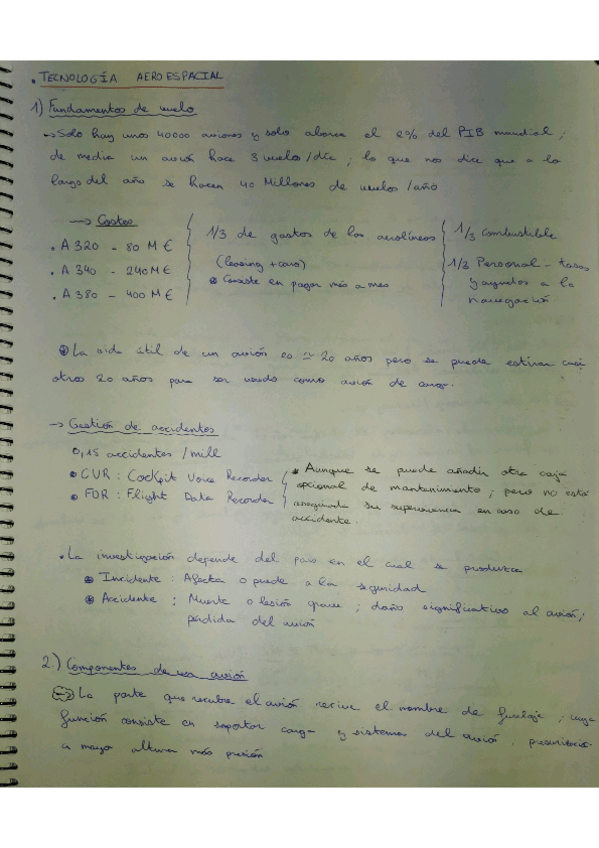 • TECNOLOGÍA AEROESPACIAL
1) Fundamentos de vuelo
→ Solo hay unos 40000 aviones y solo abarca el 2% del PIB mundial;
de media un avión hace 3 vuelos/día; lo que nos dice que a lo
largo del año se hacen 40 Millones de vuelos/año
→ Costos
• A 320 - 80 M €
• A 340 - 240 M €
• A 380 - 400 M €
1/3 de gastos de las aerolíneas
(leasing + caro)
Consiste en pagar mes a mes
1/3 combustible
1/3 Personal - tasas
y ayudas a la
navegación
La vida útil de un avión es ≃ 20 años pero se puede estirar casi
otros 20 años para ser usado como avión de carga.
→ Gestión de accidentes
0,15 accidentes /mill
• CVR : Cockpit Voice Recorder
• FDR : Flight Data Recorder
* Aunque se puede añadir otra caja
opcional de mantenimiento; pero no está
asegurada su supervivencia en caso de
accidente.
• La investigación depende del país en el cual se produzca
Incidente : Afecta o puede a la seguridad
Accidente ; Muerte o lesión grave ; daño significativo al avión;
pérdida del avión
2.) Componentes de un avión
La parte que recubre el avión recive el nombre de fuselaje ; cuya
función consiste en soportar carga y sistemas del avión,
a mayor altura más presión